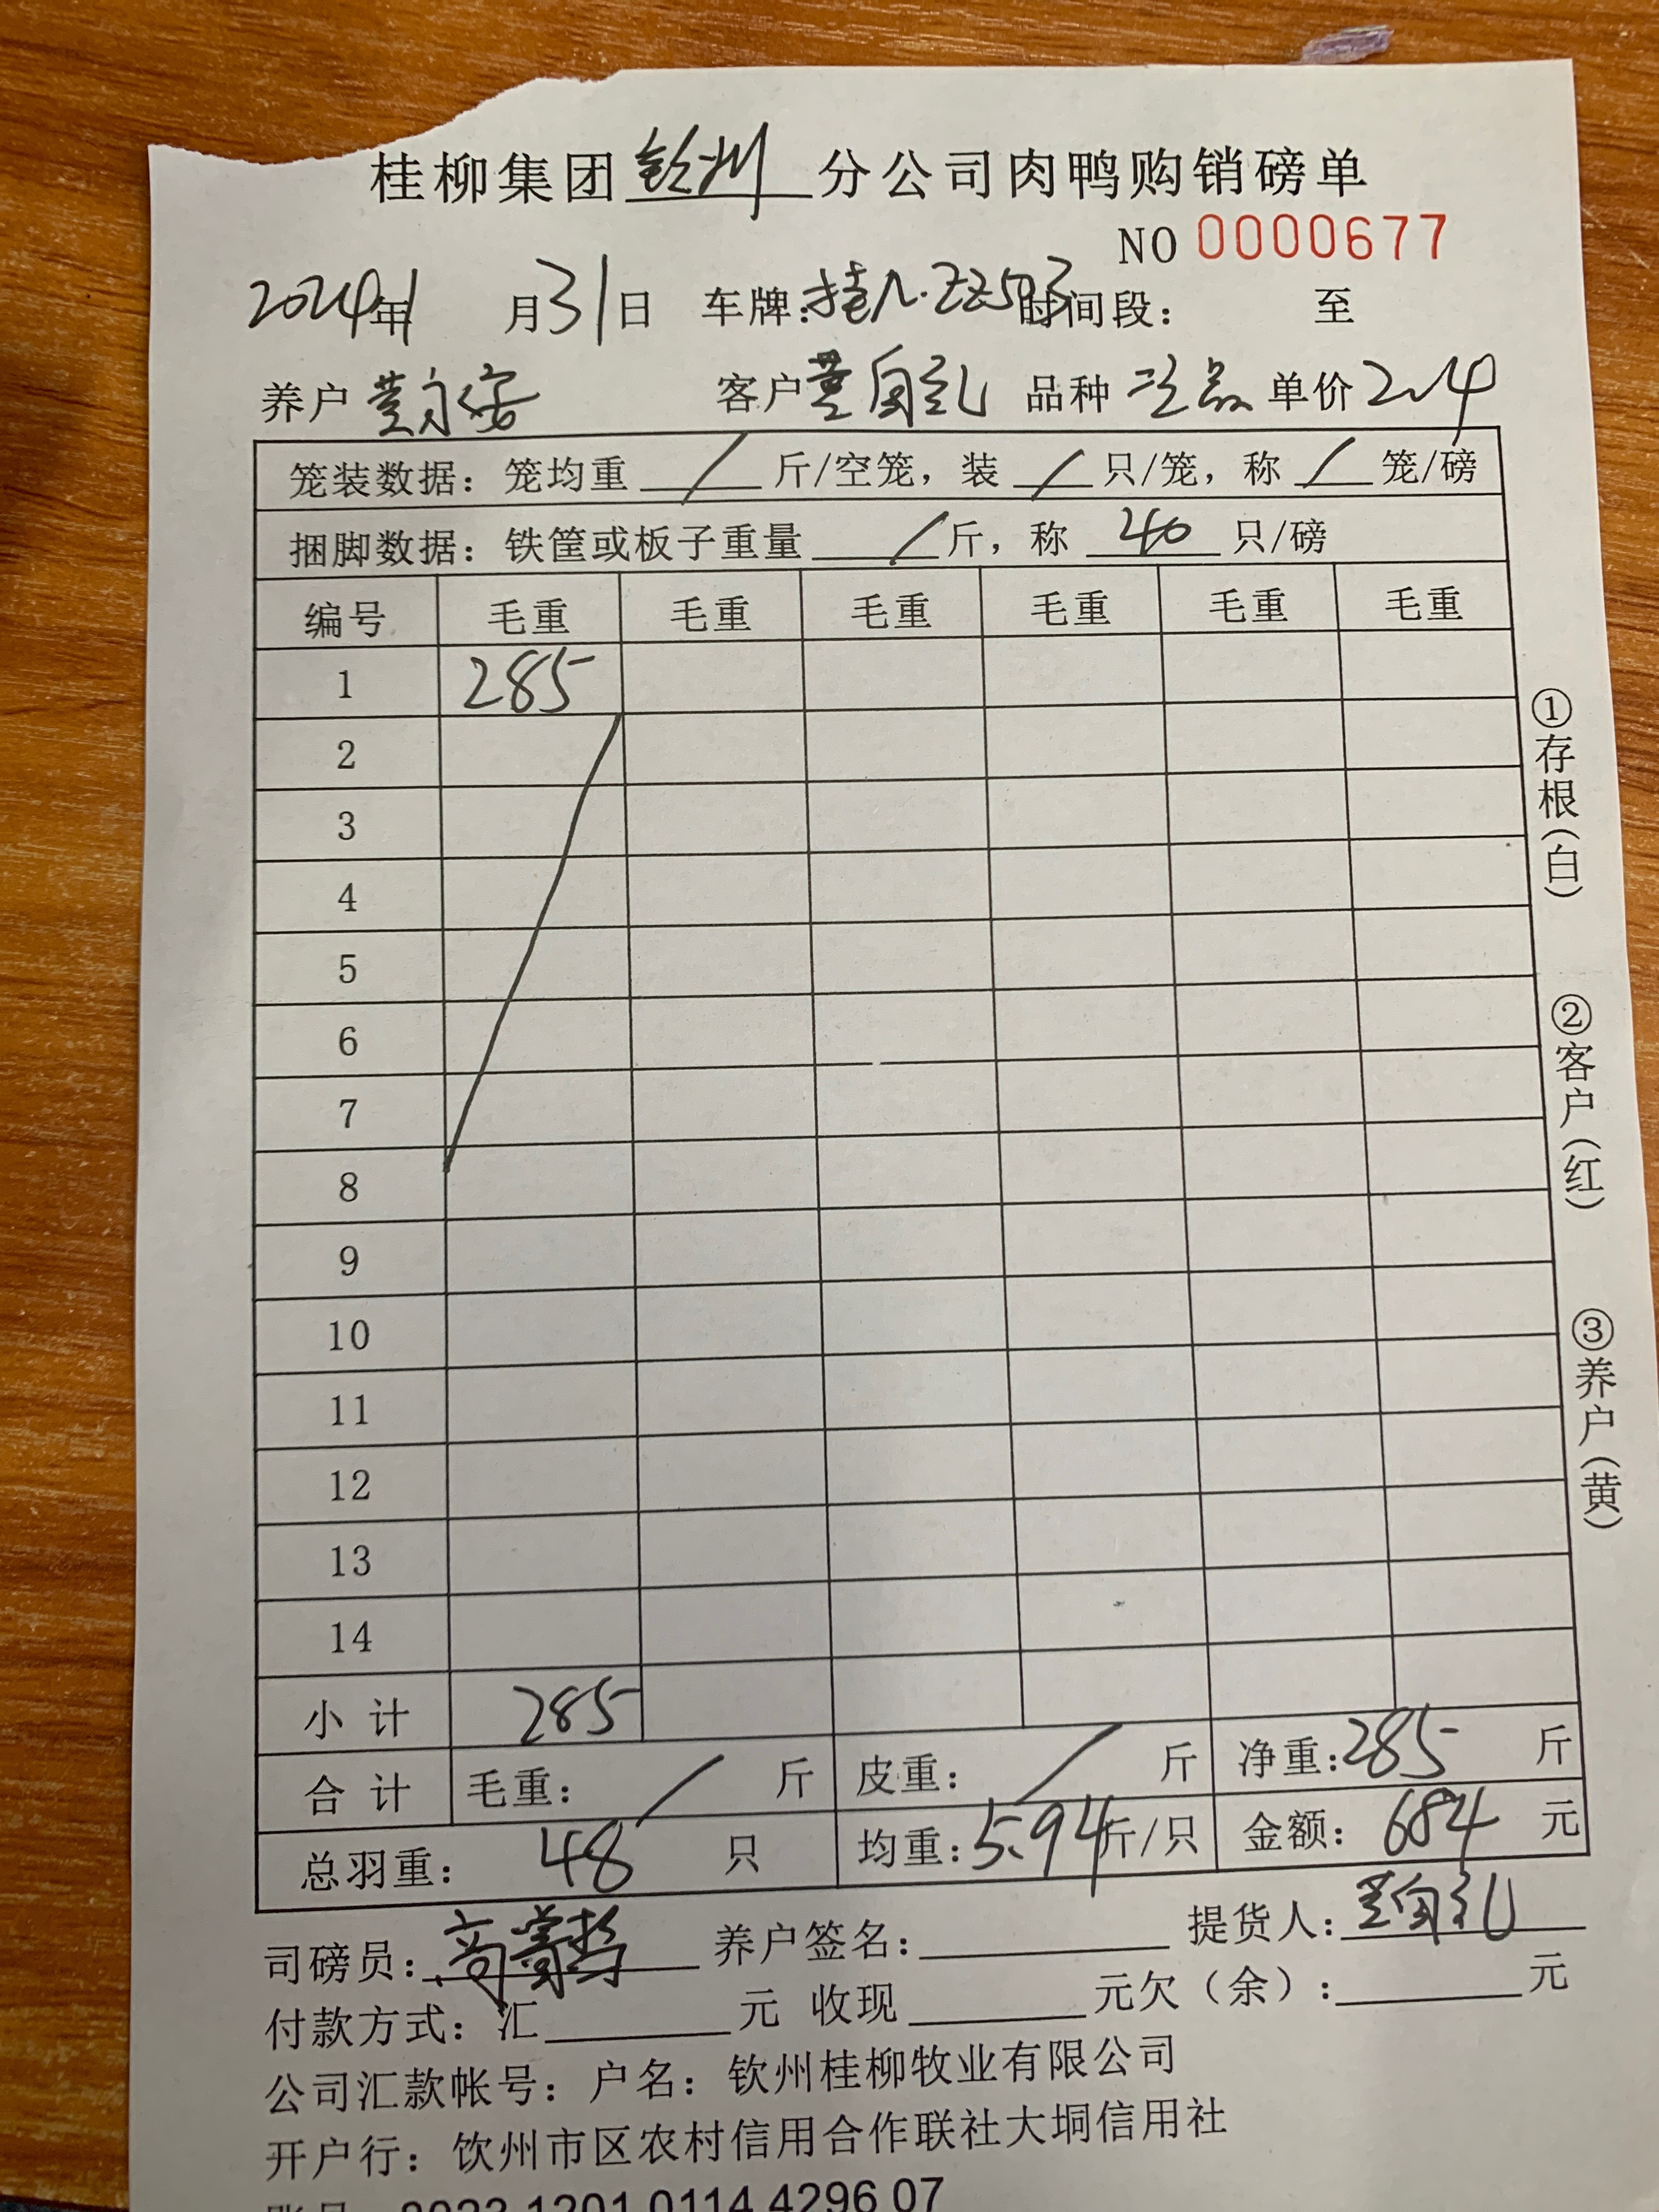 桂柳集团钦州分公司肉鸭购销磅单
NO 0000677
2024年1月31日 车牌:桂N·ZZ503 时间段: 至
养户 黄永安 客户 黄自礼 品种 次品 单价 2.4
笼装数据: 笼均重 / 斤/空笼, 装 / 只/笼, 称 / 笼/磅
捆脚数据: 铁筐或板子重量 / 斤, 称 40 只/磅
编号 毛重 毛重 毛重 毛重 毛重 毛重
1 285
2
3
4
5
6
7
8
9
10
11
12
13
14
小计 285
合计 毛重: / 斤 皮重: / 斤 净重:285 斤
总羽重: 48 只 均重:5.94斤/只 金额: 684 元
司磅员: 养户签名: 提货人:黄自礼
付款方式: 汇 元 收现 元欠(余): 元
公司汇款帐号: 户名: 钦州桂柳牧业有限公司
开户行: 饮州市区农村信用合作联社大垌信用社
①存根(白)
②客户(红)
③养户(黄)